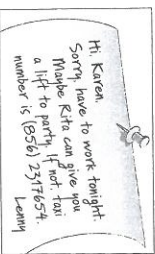 Hi, Karen.
Sorry, have to work tonight.
Maybe Rita can give you
a lift to party. If not, taxi
number is (856) 2347654.
Lenny